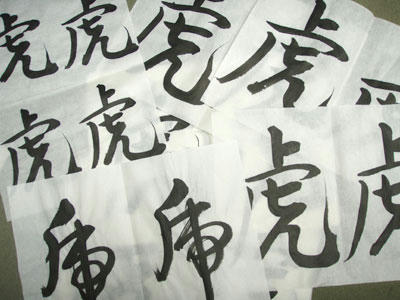 虎虎
虎虎
虎
虎
虎虎
乕乕